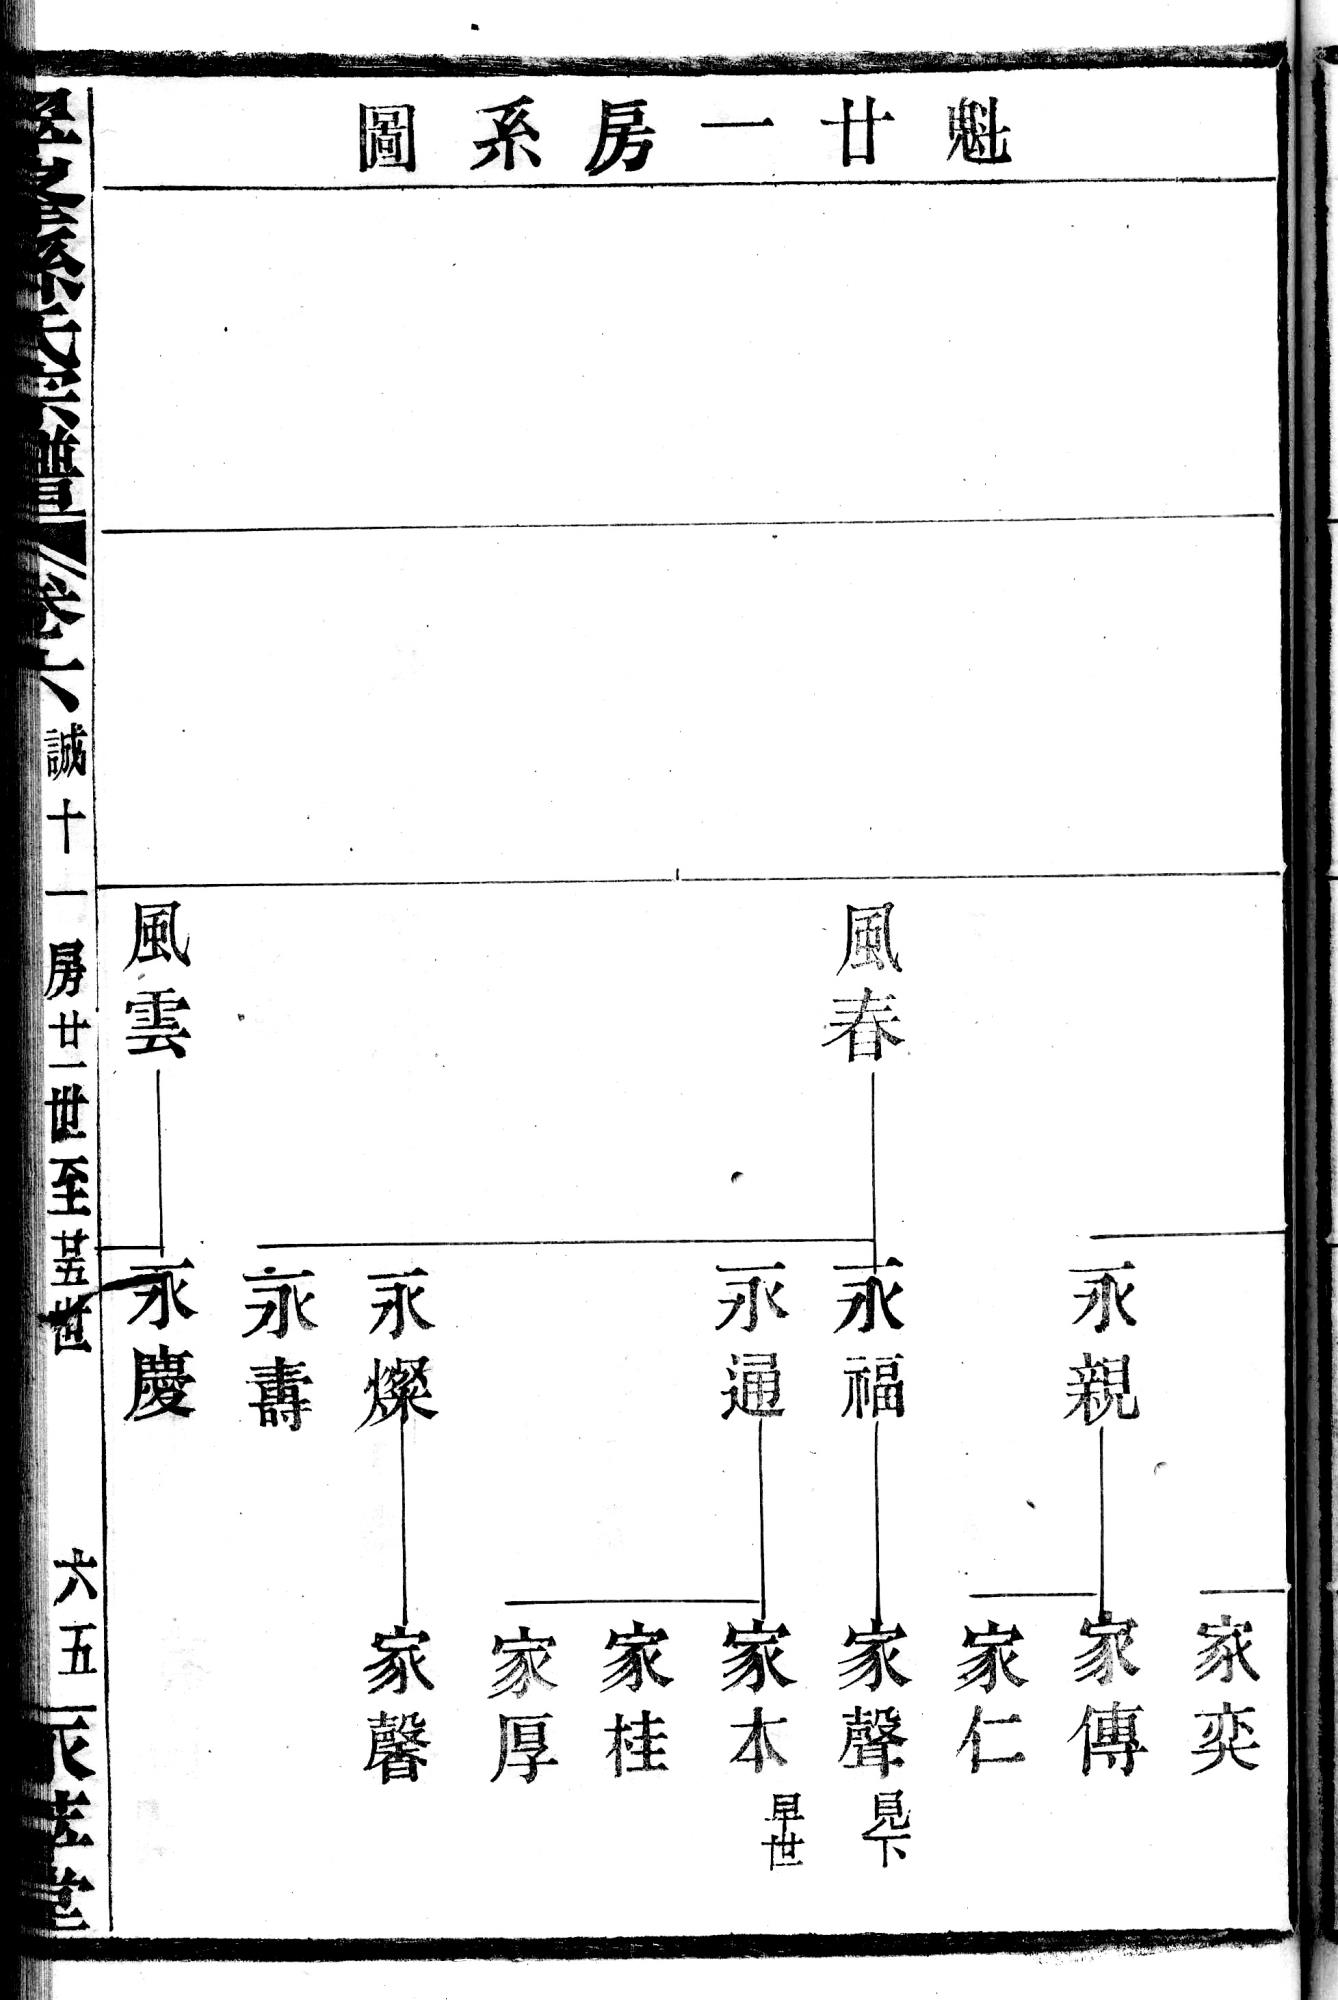 魁廿一房系圖
風春
風雲
永親
永福
永通
永燦
永壽
永慶
家奕
家傳
家仁
家聲 見下
家本 早世
家桂
家厚
家馨
孫氏宗譜
卷六
誠十一房廿一世至廿五世
六五
堂